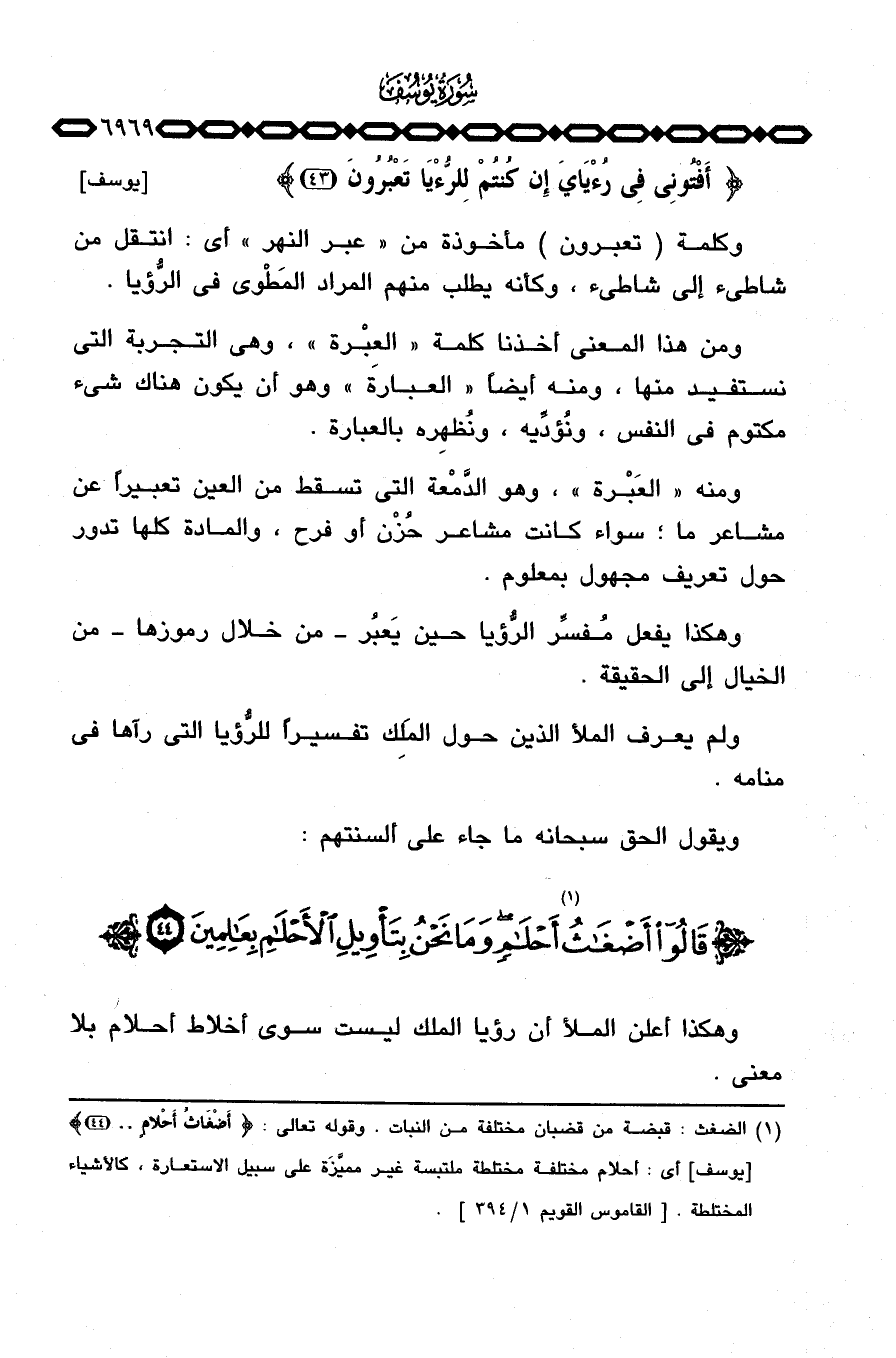 سُورَةُ يُوسُفَ
٦٩٦٩
﴿ أَفْتُونِى فِى رُءْيَاىَ إِن كُنتُمْ لِلرُّءْيَا تَعْبُرُونَ (٤٣) ﴾ [يوسف]
وكلمة ( تعبرون ) مأخوذة من « عبر النهر » أى : انتقل من
شاطىء إلى شاطىء ، وكأنه يطلب منهم المراد المَطْوى فى الرُّؤيا .
ومن هذا المعنى أخذنا كلمة « العِبْرة » ، وهى التجربة التى
نستفيد منها ، ومنه أيضاً « العِبارة » وهو أن يكون هناك شىء
مكتوم فى النفس ، ونُؤدِّيه ، ونُظهِره بالعبارة .
ومنه « العَبْرة » ، وهو الدَّمْعة التى تسقط من العين تعبيراً عن
مشاعر ما ؛ سواء كانت مشاعر حُزْن أو فرح ، والمادة كلها تدور
حول تعريف مجهول بمعلوم .
وهكذا يفعل مُفسِّر الرُّؤيا حين يَعبُر ــ من خلال رموزها ــ من
الخيال إلى الحقيقة .
ولم يعرف الملأ الذين حول الملِك تفسيراً للرُّؤيا التى رآها فى
منامه .
ويقول الحق سبحانه ما جاء على ألسنتهم :
﴿ قَالُوٓا۟ أَضْغَـٰثُ (١) أَحْلَـٰمٍۖ وَمَا نَحْنُ بِتَأْوِيلِ ٱلْأَحْلَـٰمِ بِعَـٰلِمِينَ ٤٤ ﴾
وهكذا أعلن الملأ أن رؤيا الملك ليست سوى أخلاط أحلام بلا
معنى .
(١) الضغث : قبضة من قضبان مختلفة من النبات . وقوله تعالى : ﴿ أَضْغَاثُ أَحْلامٍ .. (٤٤) ﴾
[يوسف] أى : أحلام مختلفة مختلطة ملتبسة غير مميَّزة على سبيل الاستعارة ، كالأشياء
المختلطة . [ القاموس القويم ٣٩٤/١ ] .